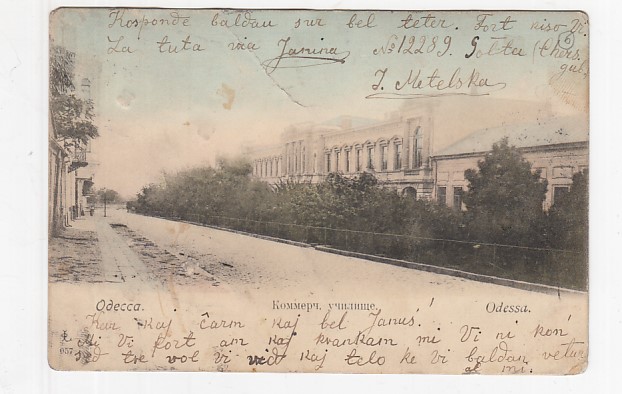 Kosponde baldau sur bel teter. Fort kiso
La tuta via Janina № 12289. Golta (Chers. gub.
J. Metelska
Одесса. Коммерч. училище. Odessa.
Keir kaj ĉarm kaj bel Januś!
Mi Vi fort am kaj kvankam mi Vi ni kon'
sed tre vol Vi vid kaj telo ke Vi baldau vetur
al mi.